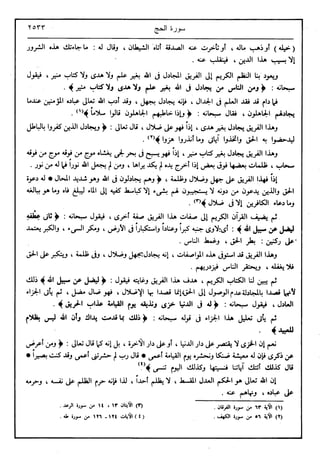 سورة الحج
٢٥٣٣
(خيله) أو ذهب ماله، أو تأخرت عنه الصدقة أتاه الشيطان، وقال له: ما جاءتك هذه الشرور
إلا بسبب هذا الدين، فينقلب عنه.
ويعود بنا النظم الكريم إلى الفريق المجادل فى الله بغير علم ولا هدى ولا كتاب منير، فيقول
سبحانه: ﴿ ومن الناس من يجادل فى الله بغير علم ولا هدى ولا كتاب منير ﴾.
فما دام قد فقد العلم فى الجدال، فإنه يجادل بجهل، وقد أدب الله تعالى عباده المؤمنين عندما
يجادلهم الجاهلون، فقال سبحانه: ﴿ وإذا خاطبهم الجاهلون قالوا سلاماً ﴾(١).
وهذا الفريق يجادل بغير هدى، إذاً فهو على ضلال، قال تعالى: ﴿ ويجادل الذين كفروا بالباطل
ليدحضوا به الحق واتخذوا آياتى وما أنذروا هزوا ﴾(٢).
وهذا الفريق يجادل بغير كتاب منير، إذاً فهو يسبح فى بحر لجى يغشاه موج من فوقه موج من فوقه
سحاب، ظلمات بعضها فوق بعض إذا أخرج يده لم يكد يراها، ومن لم يجعل الله نوراً فما له من نور.
إذاً فهذا الفريق على جهل وضلال وظلمة، ﴿ وهم يجادلون فى الله وهو شديد المحال * له دعوة
الحق والذين يدعون من دونه لا يستجيبون لهم بشىء إلا كباسط كفيه إلى الماء ليبلغ فاه وما هو ببالغه
وما دعاء الكافرين إلا فى ضلال ﴾(٣).
ثم يضيف القرآن الكريم إلى صفات هذا الفريق صفة أخرى، فيقول سبحانه: ﴿ ثانى عطفه
ليضل عن سبيل الله ﴾: أى لاوى جنبه كبراً وعناداً واستكباراً فى الأرض، ومكر السىء، والكبر يعتمد
على ركنين: بطر الحق، وغمط الناس.
وهذا الفريق قد استوفى هذه المواصفات، إنه يجادل بجهل وضلال، وفى ظلمة، ويتكبر على الحق
فلا يقبله، ويحتقر الناس فيزدريهم.
ثم يبين لنا الكتاب الكريم، هدف هذا الفريق وغايته فيقول: ﴿ ليضل عن سبيل الله ﴾ ذلك
لأنهما قصدا بالمجادلة عدم الوصول إلى الحق إنما قصدا بها الإضلال، فهو ضال مضل، ثم يأتى الجزاء
العادل، فيقول سبحانه: ﴿ له فى الدنيا خزى ونذيقه يوم القيامة عذاب الحريق ﴾.
ثم يأتى تعليل هذا الجزاء فى قوله سبحانه: ﴿ ذلك بما قدمت يداك وأن الله ليس بظلام
للعبيد ﴾.
نعم إن الخزى لا يقتصر على دار الدنيا، أو على دار الآخرة، بل إنه كما قال تعالى: ﴿ ومن أعرض
عن ذكرى فإن له معيشة ضنكا ونحشره يوم القيامة أعمى * قال رب لم حشرتنى أعمى وقد كنت بصيراً *
قال كذلك أتتك آياتنا فنسيتها وكذلك اليوم تنسى ﴾(٤)
إن الله تعالى هو الحكم العدل المقسط، لا يظلم أحداً، لذا فإنه حرم الظلم على نفسه، وحرمه
على عباده، ونهاهم عنه.
(١) الآية ٦٣ من سورة الفرقان.
(٣) الآيتان ١٣، ١٤ من سورة الرعد.
(٢) الآية ٥٦ من سورة الكهف.
(٤) الآيات ١٢٤ - ١٢٦ من سورة طه.